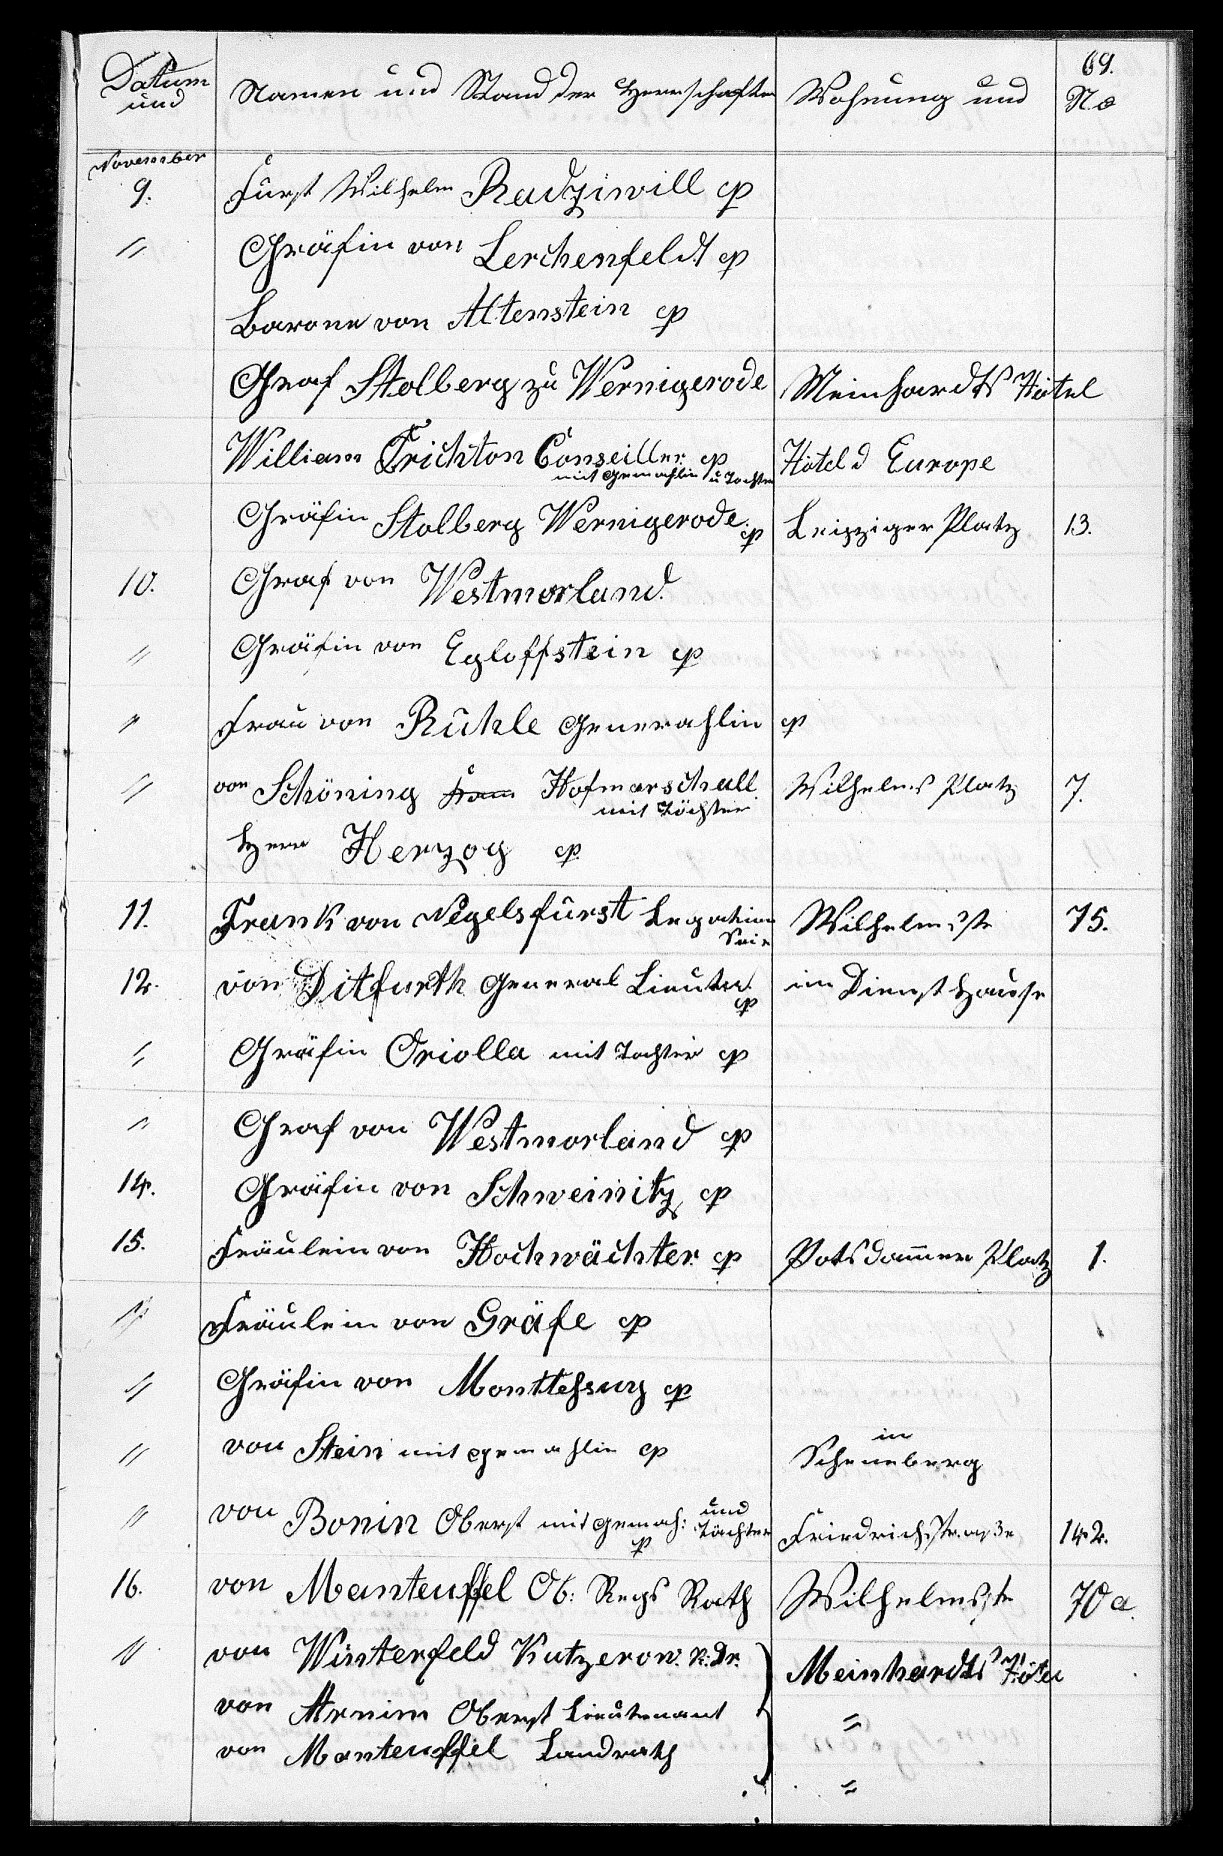 69.
Datum und | Namen und Stand der Herrschaften | Wohnung und | No
November
9. Fürst Wilhelm Radziwill cp
" Gräfin von Lerchenfeldt cp
Barone von Altenstein cp
Graf Stolberg zu Wernigerode | Meinhardts Hôtel
William Trichton Conseiller cp mit Gemahlin u Tochter | Hôtel d Europe
Gräfin Stolberg Wernigerode. cp | Leipziger Platz | 13.
10. Graf von Westmorland.
" Gräfin von Egloffstein cp
" Frau von Rühle Generahlin cp
" von Schöning Hofmarschall. mit Töchter | Wilhelms Platz | 7.
Herr Herzog cp.
11. Frank von Negelsfürst Legation | Wilhelmstr | 75.
12. von Ditfurth General Lieuten. cp | im Dienst Hause
" Gräfin Oriolla mit Tochter cp
" Graf von Westmorland cp
14. Gräfin von Schweinitz cp
15. Fräulein von Hochwächter cp | Potsdammer Platz | 1.
" Fräulein von Gräfe cp
" Gräfin von cp
" von Stein mit Gemahlin cp | in Scheneberg
" von Bonin Oberst mit Gemah: und Töchter cp | Friedrichstraße | 142.
16. von Manteuffel Ob: Regs Rath | Wilhelmstr | 70a.
" von Winterfeld Kutzerow. R: Dr. | Meinhardts Hôtel
von Arnim Oberst Lieutenant | "
von Manteuffel Landrath | "